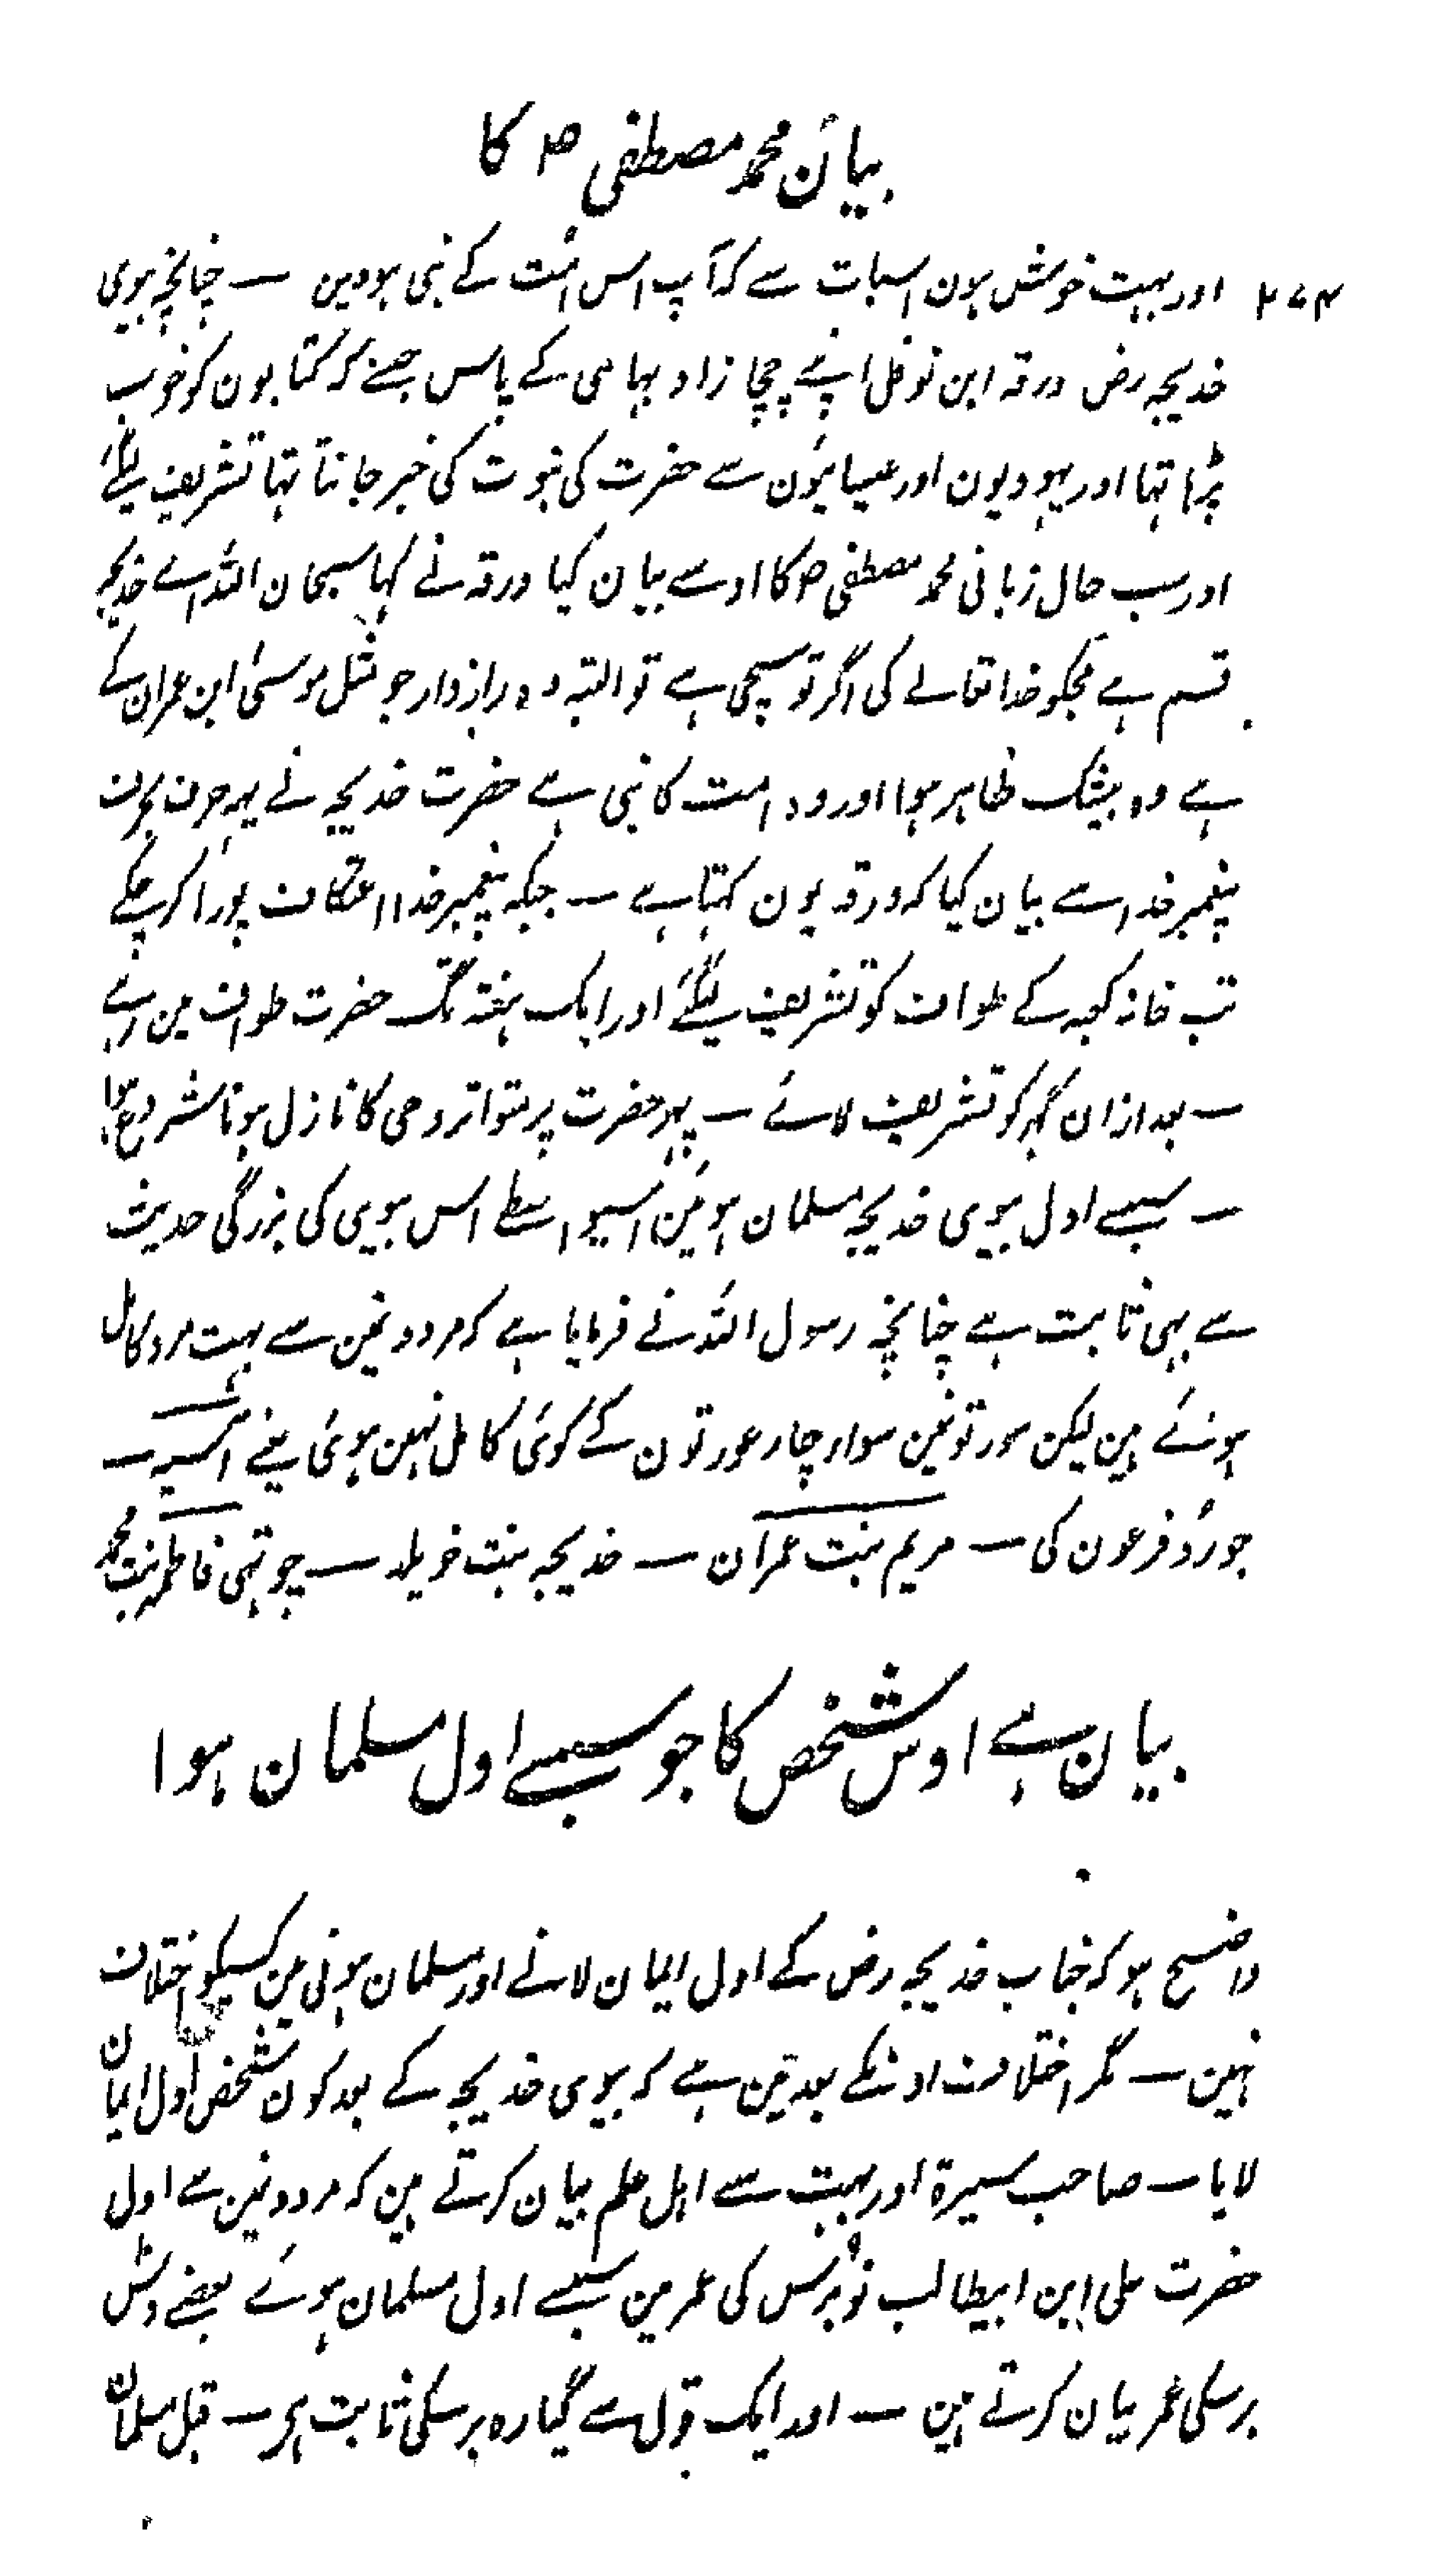 بیان محمد مصطفی ص کا
۲۷۴ اور بہت خوش ہون اسبات سے کہ آپ اس امت کے نبی ہووین — چنانچہ بیوی
خدیجہ رض ورقہ ابن نوفل اپنے چچا زاد بہائی کے پاس جسنے کہ کتابون کو خوب
پڑا تہا اور یہودیون اور عیسایئون سے حضرت کی نبوت کی خبر جانتا تہا تشریف لیگئے
اور سب حال زبانی محمد مصطفی ص کا اوسے بیان کیا ورقہ نے کہا سبحان اللہ اے خدیجہ
قسم ہے مجکو خدا تعالے کی اگر تو سچی ہے تو البتہ وہ رازدار جو مثل موسیٰ ابن عمران کے
ہے وہ بیشک ظاہر ہوا اور وہ امت کا نبی ہے حضرت خدیجہ نے یہہ حرف بحرف
پیغمبر خدا سے بیان کیا کہ ورقہ یون کہتا ہے — جبکہ پیغمبر خدا اعتکاف پورا کر چکے
تب خانہ کعبہ کے طواف کو تشریف لیگئے اور ایک ہفتہ تک حضرت طواف مین رہے
— بعد ازان گہر کو تشریف لائے — پہر حضرت پر متواتر وحی کا نازل ہونا شروع ہوا
— سبسے اول بیوی خدیجہ مسلمان ہویئن اسیواسطے اس بیوی کی بزرگی حدیث
سے بہی ثابت ہے چنانچہ رسول اللہ نے فرمایا ہے کہ مردونمین سے بہت مرد کامل
ہوئے ہین لیکن عورتونمین سوار چار عورتون کے کوئی کامل نہین ہوئی یعنے آسیہ —
جورو فرعون کی — مریم بنت عمران — خدیجہ بنت خویلد — چوتہی فاطمہ بنت محمد
بیان ہے اوس شخص کا جو سبسے اول مسلمان ہوا
واضح ہو کہ جناب خدیجہ رض کے اول ایمان لانے اور مسلمان ہونی مین کسیکو اختلاف
نہین — مگر اختلاف اونکے بعد مین ہے کہ بیوی خدیجہ کے بعد کون شخص اول ایمان
لایا — صاحب سیرۃ اور بہت سے اہل علم بیان کرتے ہین کہ مردونمین سے اول
حضرت علی ابن ابیطالب نو برس کی عمر مین سبسے اول مسلمان ہوئے بعضے دس
برسکی عمر بیان کرتے ہین — اور ایک قول سے گیارہ برسکی ثابت ہی — قبل مسلمان